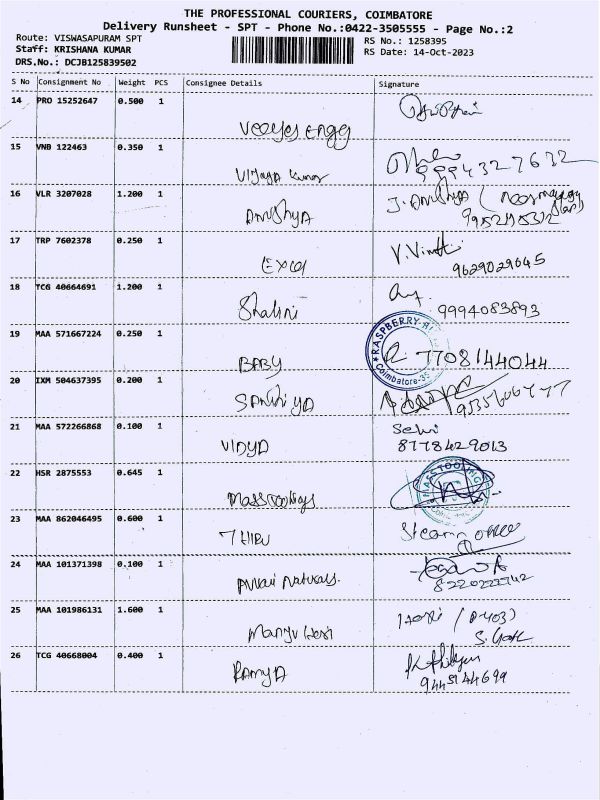 THE PROFESSIONAL COURIERS, COIMBATORE
Delivery Runsheet - SPT - Phone No.:0422-3505555 - Page No.:2
Route: VISWASAPURAM SPT
RS No.: 1258395
Staff: KRISHANA KUMAR
RS Date: 14-Oct-2023
DRS.No.: DCJB125839502
S No Consignment No Weight PCS Consignee Details Signature
14 PRO 15252647 0.500 1
Engg
15 VNB 122463 0.350 1
Vijaya Kumar 9994327632
16 VLR 3207028 1.200 1
Anushya J. Anushya
17 TRP 7602378 0.250 1
Excel V. Vinoth
9629029645
18 TCG 40664691 1.200 1
Shalini 9994083893
19 MAA 571667224 0.250 1
RASPBERRY
BABY 7708144044
Coimbatore-35
20 IXM 504637395 0.200 1
SANTHIYA
21 MAA 572266868 0.100 1
Selvi
VIDYA 8778429013
22 HSR 2875553 0.645 1
MASSTOOLINGS
Masstoolings
23 MAA 862046495 0.600 1
THIRU
24 MAA 101371398 0.100 1
Naturals. 8220222742
25 MAA 101986131 1.600 1
Manju
26 TCG 40668004 0.400 1
RAMYA
9445144699